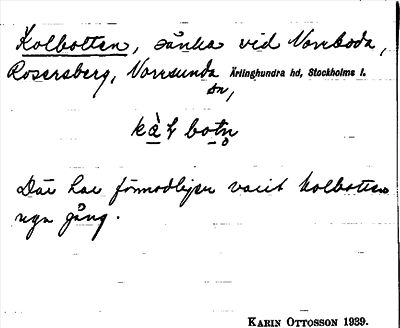 Kolbotten, sänka vid Norrboda,
Rosersberg, Norrsunda Ärlinghundra hd, Stockholms l.
sn,
Där har förmodligen varit kolbotten
nån gång.
KARIN OTTOSSON 1939.